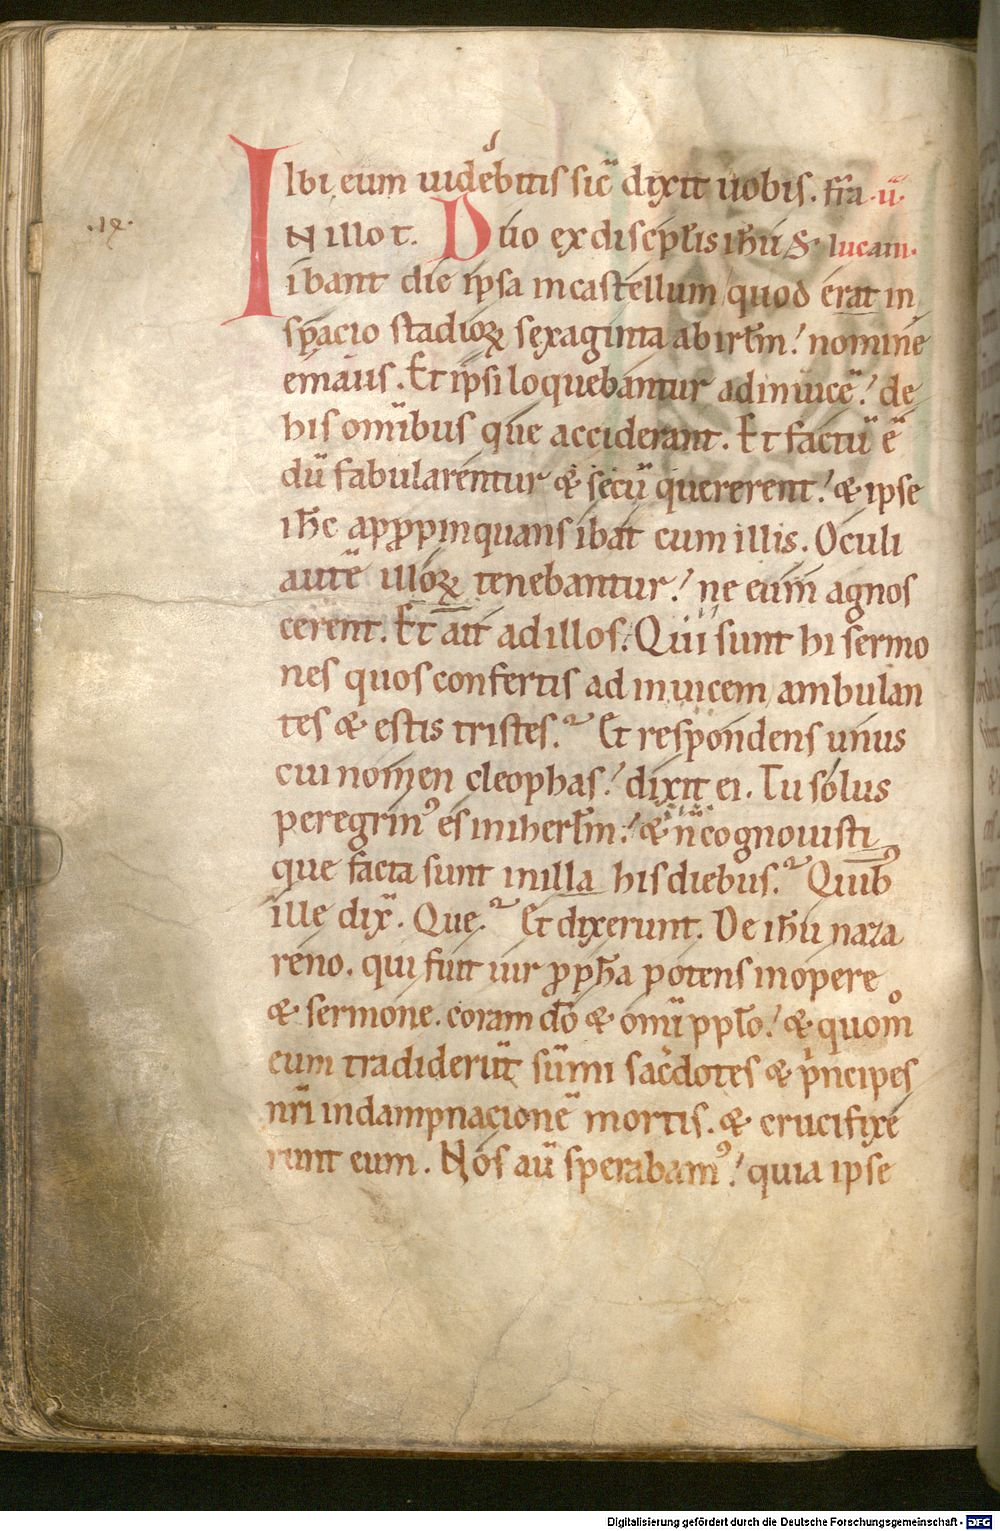 Ibi eum uidebitis sic̄ dixit uobis. fr̄a .ii.
.14.
IN illo t̄. Duo ex discipl̄is ih̄u S. lucam.
ibant die ipsa in castellum quod erat in
spacio stadioꝝ sexaginta ab irl̄m! nomine
emaus. Et ipsi loquebantur adinuicē! de
his omībus que acciderant. Et factū ē
dū fabularentur & secū quererent! & ipse
ih̄c appropinquans ibat cum illis. Oculi
autē illoꝝ tenebantur! ne eum agnos
cerent. Et ait ad illos. Qui sunt hi sermo
nes quos confertis ad inuicem ambulan
tes & estis tristes? Et respondens unus
cui nomen cleophas! dixit ei. Tu solus
peregrinꝰ es in iherl̄m! & n̄ cognouisti
que facta sunt in illa his diebus? Quibꝰ
ille dix̄. Que? Et dixerunt. De ih̄u naza
reno. qui fuit uir ꝓph̄a potens in opere
& sermone. coram dō & omi ppl̄o! & quomͦ
eum tradiderūt sūmi sac̄dotes & pͥncipes
nr̄i in dampnacionē mortis. & crucifixe
runt eum. Nos aū sperabamꝰ! quia ipse
Digitalisierung gefördert durch die Deutsche Forschungsgemeinschaft - DFG